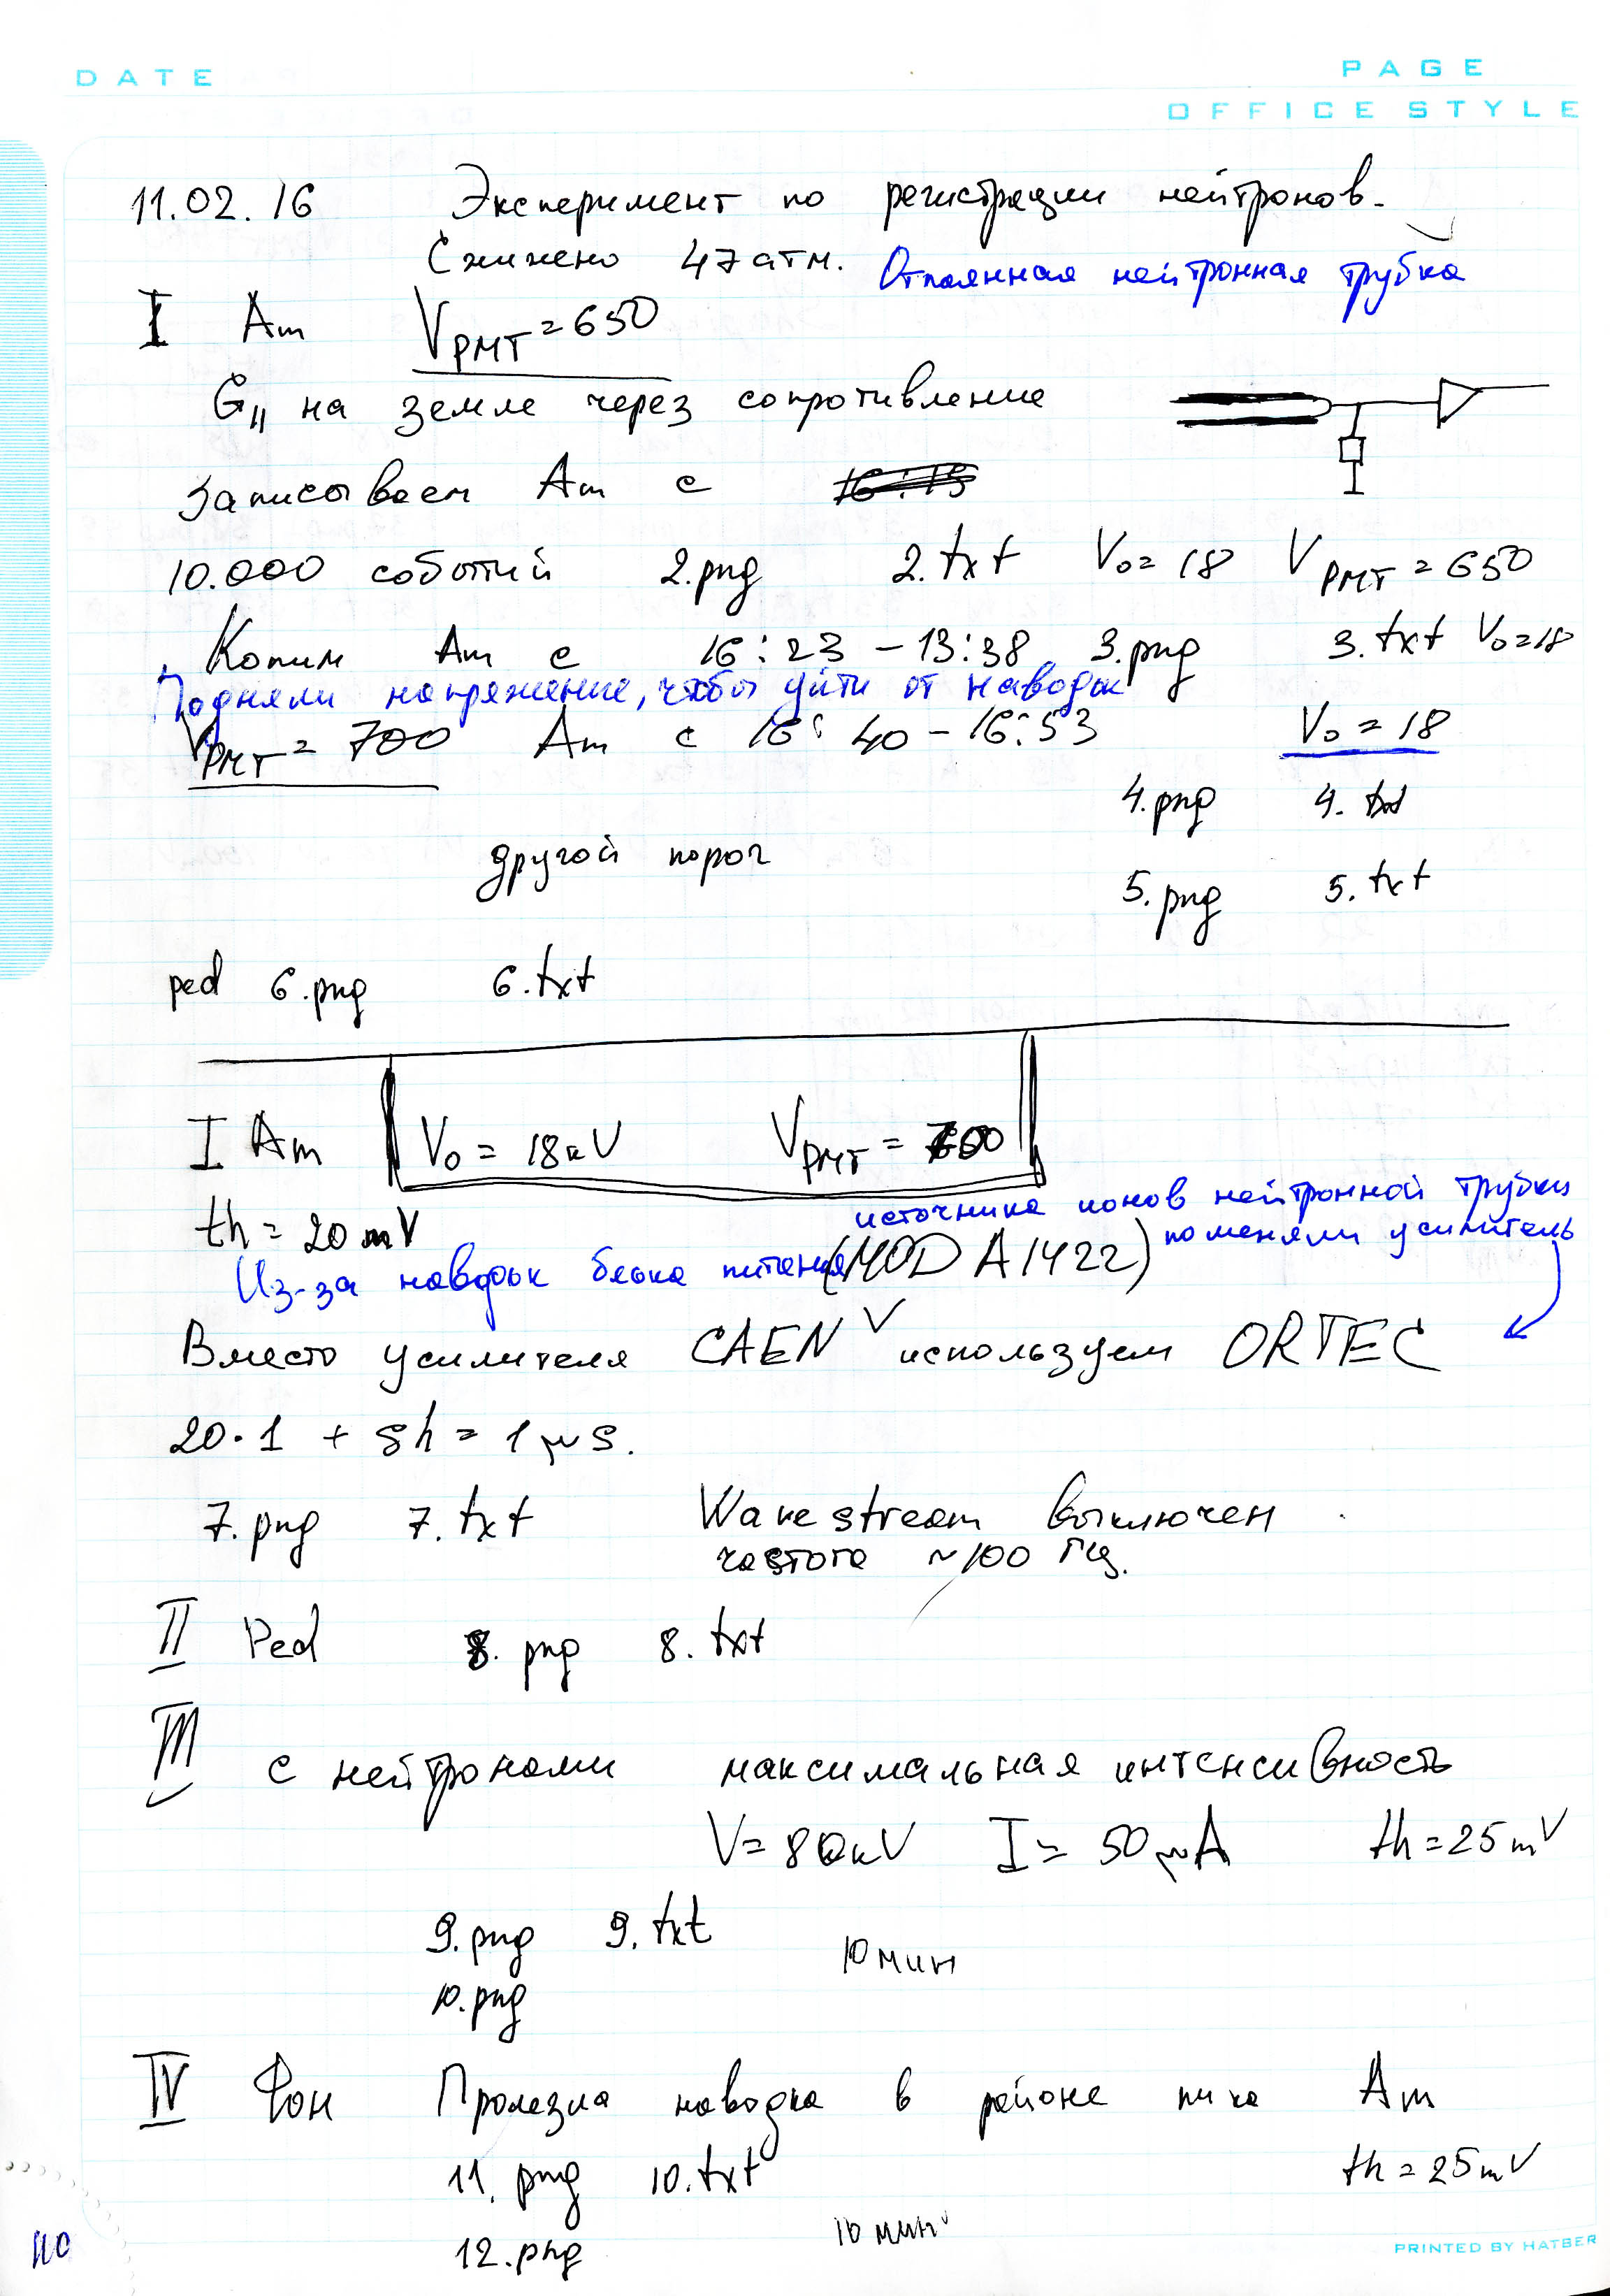 DATE
PAGE
OFFICE STYLE
11.02.16 Эксперимент по регистрации нейтронов.
Сжижено 47 атм. Отпаянная нейтронная трубка
I Am V PMT = 650
G|| на земле через сопротивление
Записываем Am с 16:15
10.000 событий 2.png 2.txt V0 = 18 V PMT = 650
Копим Am с 16:23 - 13:38 3.png 3.txt V0 = 18
Подняли напряжение, чтобы уйти от наводок
V PMT = 700 Am с 16:40 - 16:53 V0 = 18
4.png 4.txt
другой порог
5.png 5.txt
ped 6.png 6.txt
I Am V0 = 18кV V PMT = 700
th = 20 mV
источника ионов нейтронной трубки
Из-за наводок блока питания (MOD A1422) поменяли усилитель
Вместо усилителя CAEN V используем ORTEC
20·1 + sh = 1 μs.
7.png 7.txt Wave stream выключен
частота ~100 Гц.
II Ped 8.png 8.txt
III с нейтронами максимальная интенсивность
V = 80кV I = 50 μA th = 25 mV
9.png 9.txt
10 мин
10.png
IV Фон Пролезла наводка в районе пика Am
11.png 10.txt th = 25 mV
12.png 10 мин
110
PRINTED BY HATBER